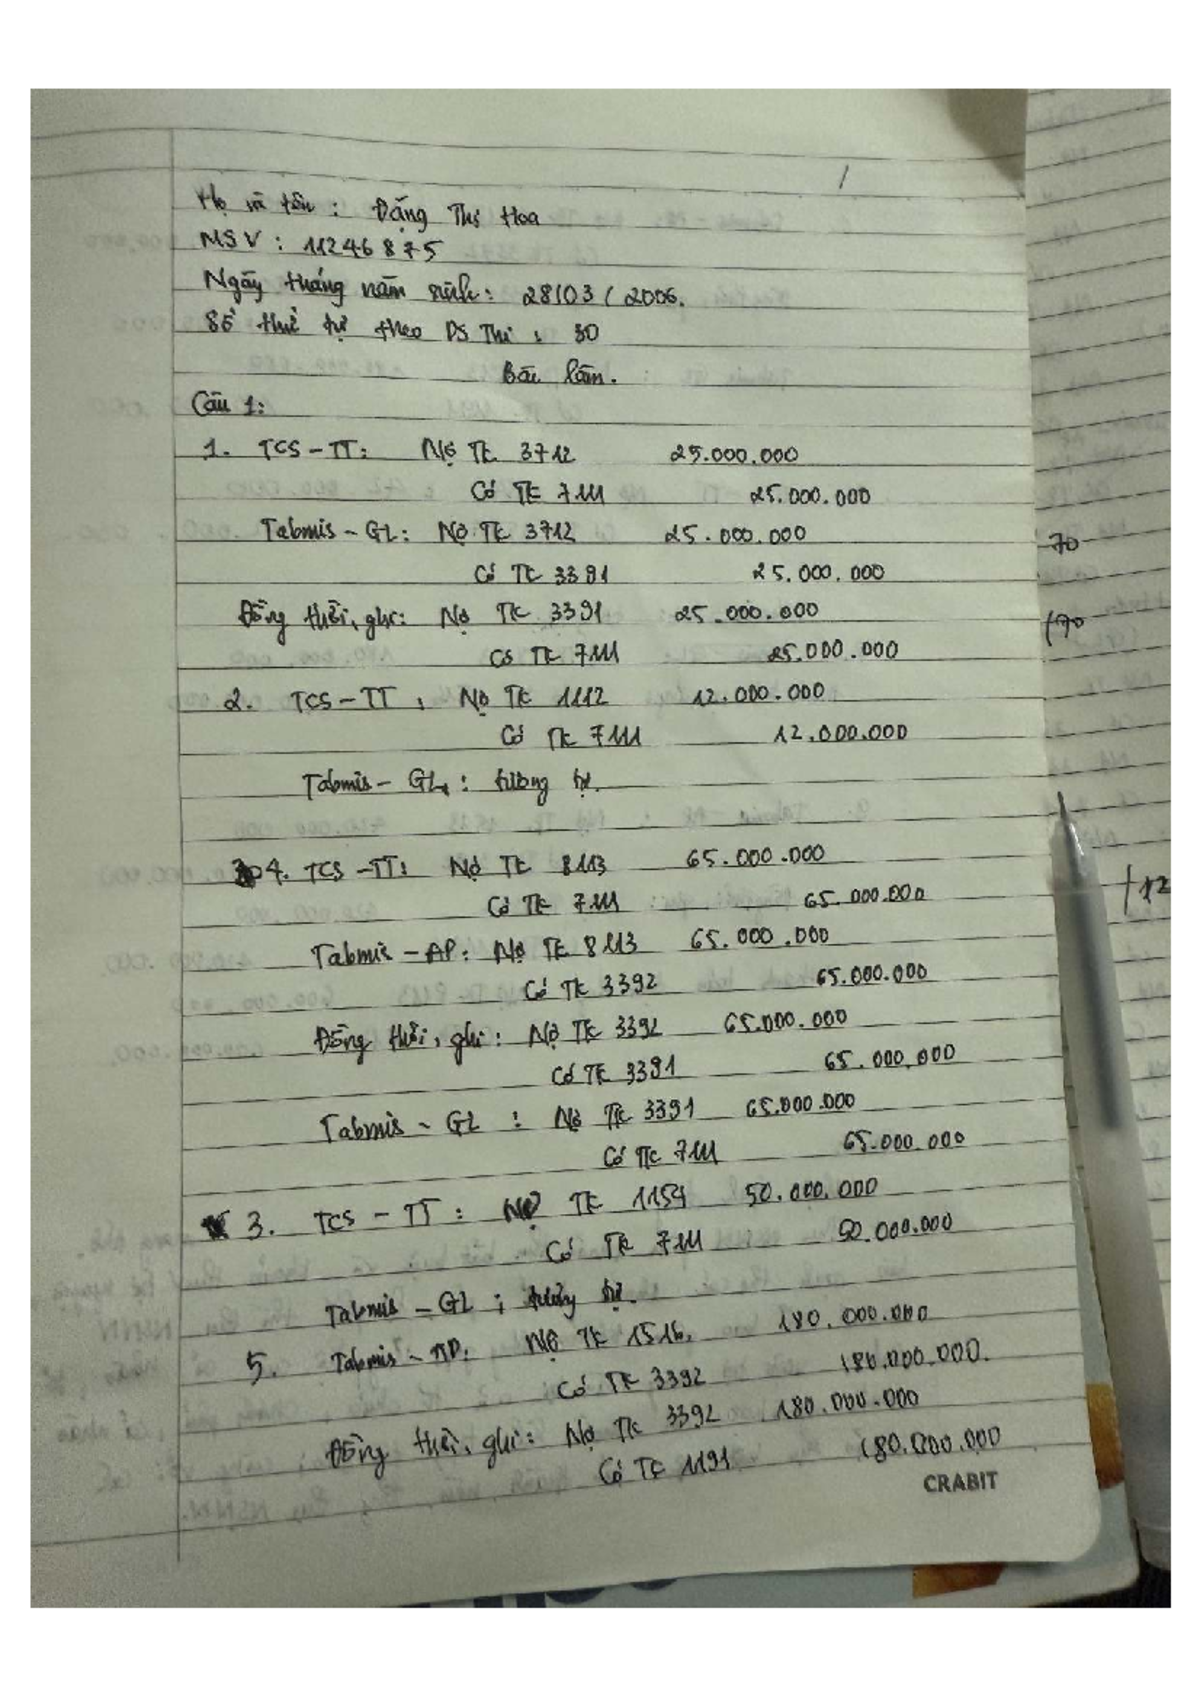 1
Họ và tên : Đặng Thị Hoa
MSV : 11246875
Ngày tháng năm sinh : 28/03/2006.
Số thứ tự theo DS Thi : 30
Bài làm.
Câu 1:
1. TCS-TT: Nợ TK 3712 25.000.000
Có TK 7111 25.000.000
Tabmis-GL: Nợ TK 3712 25.000.000
Có TK 3391 25.000.000
Đồng thời, ghi: Nợ TK 3391 25.000.000
Có TK 7111 25.000.000
2. TCS-TT : Nợ TK 1112 12.000.000
Có TK 7111 12.000.000
Tabmis-GL : tương tự.
4. TCS-TT: Nợ TK 8113 65.000.000
Có TK 7111 65.000.000
Tabmis-AP: Nợ TK 8113 65.000.000
Có TK 3392 65.000.000
Đồng thời, ghi: Nợ TK 3392 65.000.000
Có TK 3391 65.000.000
Tabmis-GL : Nợ TK 3391 65.000.000
Có TK 7111 65.000.000
3. TCS-TT : Nợ TK 1154 50.000.000
Có TK 7111 50.000.000
Tabmis-GL : tương tự.
5. Tabmis-AP: Nợ TK 1516. 180.000.000
Có TK 3392 180.000.000.
Đồng thời, ghi: Nợ TK 3392 180.000.000
Có TK 1191 180.000.000
CRABIT
70
170
+12